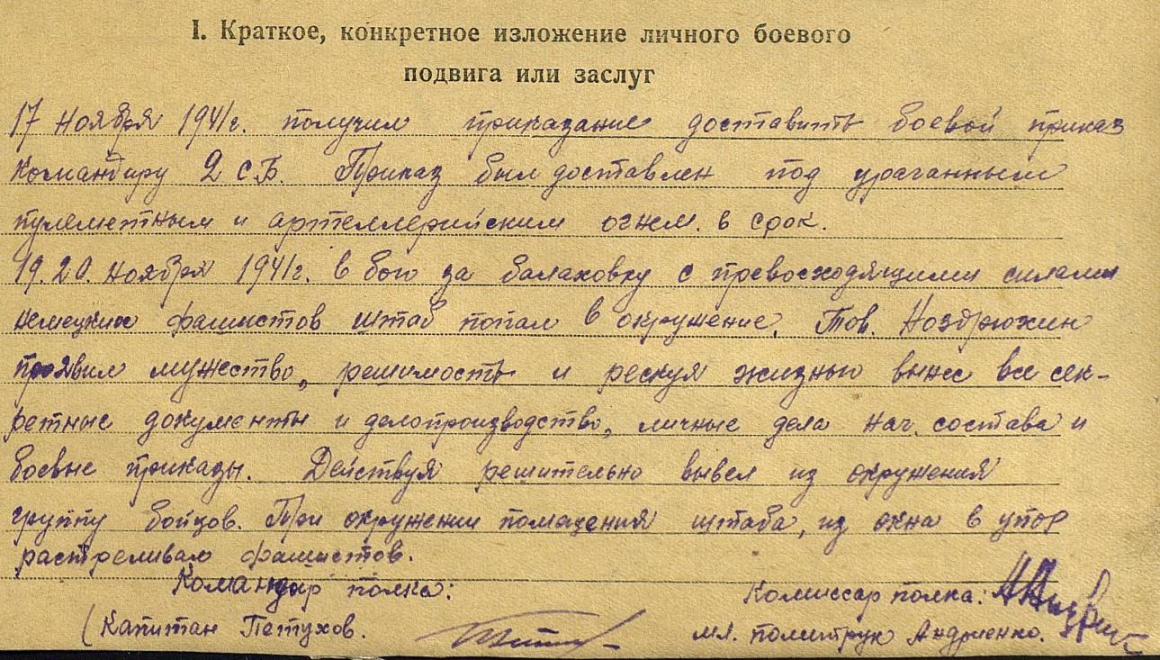 I. Краткое, конкретное изложение личного боевого
подвига или заслуг
17 ноября 1941г. получил приказание доставить боевой приказ
командиру 2 СБ. Приказ был доставлен под ураганным
пулеметным и артеллерийским огнем. в срок.
19.20. ноября 1941г. в бою за балаховку с превосходящими силами
немецких фашистов штаб попал в окружение. Тов. Ноздрюхин
проявил мужество, решимость и рескуя жизнью вынес все сек-
ретные документы и делопроизводство, личные дела нач. состава и
боевые приказы. Действуя решительно вывел из окружения
группу бойцов. При окружении помещения штаба, из окна в упор
растреливал фашистов.
Командир полка: Комиссар полка:
(Капитан Петухов. мл. политрук Андриенко.